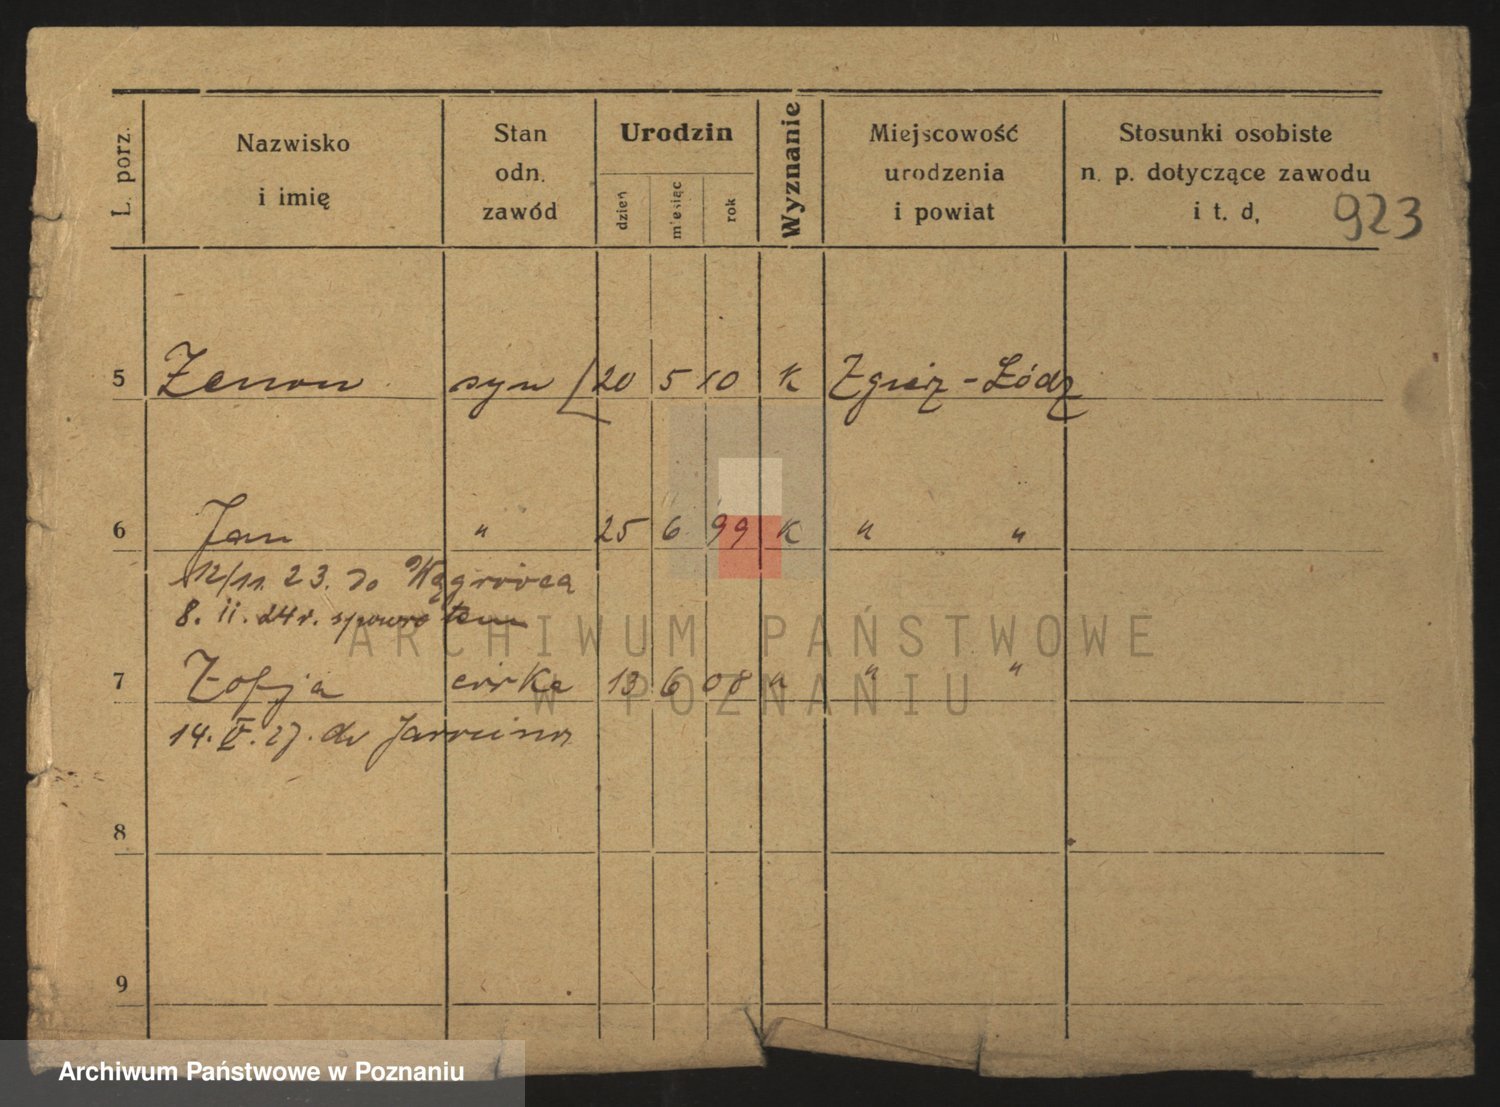 L. porz.
Nazwisko
i imię
Stan
odn.
zawód
Urodzin
dzień
miesiąc
rok
Wyznanie
Miejscowość
urodzenia
i powiat
Stosunki osobiste
n. p. dotyczące zawodu
i t. d.
923
5 Zenon syn 20 5 10 K Zgierz - Łódz
6 Jan " 25 6 99 K " "
12/11. 23. do Wągrówca
8. II. 24 r. spowrotem
7 Zofja córka 13 6 08 " " "
14. V. 27. do Jarocina
8
9
ARCHIWUM PAŃSTWOWE
W POZNANIU
Archiwum Państwowe w Poznaniu